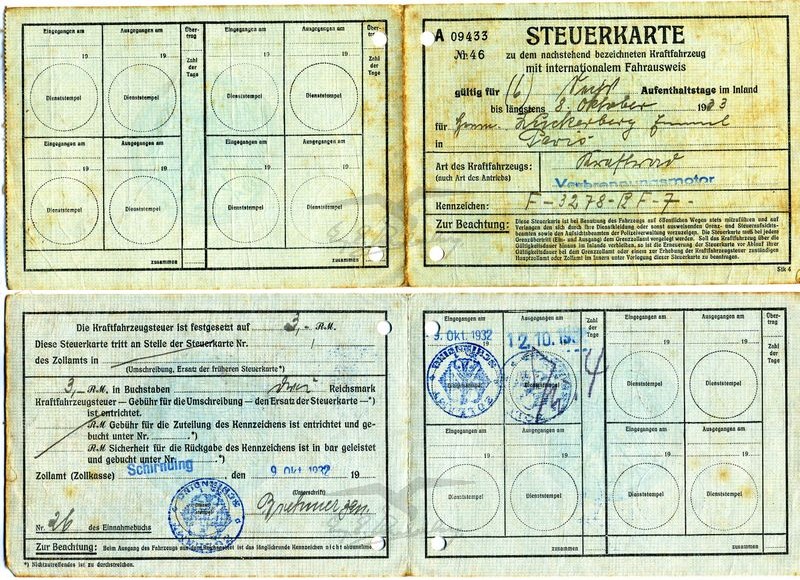 Eingegangen am
Ausgegangen am
Eingegangen am
Ausgegangen am
Übertrag
19
19
19
19
Zahl der Tage
Dienststempel
Dienststempel
Dienststempel
Dienststempel
Eingegangen am
Ausgegangen am
Eingegangen am
Ausgegangen am
19
19
19
19
Dienststempel
Dienststempel
Dienststempel
Dienststempel
zusammen
A 09433
Nr. 46
STEUERKARTE
zu dem nachstehend bezeichneten Kraftfahrzeug
mit internationalem Fahrausweis
gültig für (6) Aufenthaltstage im Inland
bis längstens 8. Oktober 1933
für Zuckerberg
in Paris
Art des Kraftfahrzeugs: Kraftrad
(auch Art des Antriebs) Verbrennungsmotor
Kennzeichen: F-3278-RF-7-
Zur Beachtung: Diese Steuerkarte ist bei Benutzung des Fahrzeugs auf öffentlichen Wegen stets mitzuführen und auf
Verlangen den sich durch ihre Dienstkleidung oder sonst ausweisenden Grenz- und Steueraufsichts-
beamten sowie den Aufsichtsbeamten der Polizeiverwaltung vorzuzeigen. Die Steuerkarte muß bei jedem
Grenzübertritt (Ein- und Ausgang) dem Grenzzollamt vorgelegt werden. Soll das Kraftfahrzeug über die
Gültigkeitsdauer hinaus im Inlande verbleiben, so ist die Erneuerung der Steuerkarte vor Ablauf ihrer
Gültigkeitsdauer bei dem Grenzzollamt oder einem zur Erhebung der Kraftfahrzeugsteuer zuständigen
Hauptzollamt oder Zollamt im Innern unter Vorlegung dieser Steuerkarte zu beantragen.
Stk 4
Die Kraftfahrzeugsteuer ist festgesetzt auf 3,- RM.
Diese Steuerkarte tritt an Stelle der Steuerkarte Nr.
des Zollamts in
(Umschreibung, Ersatz der früheren Steuerkarte*)
3,- RM, in Buchstaben drei Reichsmark
Kraftfahrzeugsteuer — Gebühr für die Umschreibung — den Ersatz der Steuerkarte —*)
ist entrichtet.
RM Gebühr für die Zuteilung des Kennzeichens ist entrichtet und ge-
bucht unter Nr. *)
RM Sicherheit für die Rückgabe des Kennzeichens ist in bar geleistet
und gebucht unter Nr. *)
Zollamt (Zollkasse) Schirnding, den 9 Okt 1932 19
(Unterschrift)
Nr. 26 des Einnahmebuchs
Zur Beachtung: Beim Ausgang des Fahrzeugs aus dem ist das länglichrunde Kennzeichen nicht abzunehmen
*) Nichtzutreffendes ist zu durchstreichen.
Eingegangen am
Ausgegangen am
Zahl der Tage
Eingegangen am
Ausgegangen am
Übertrag
9. Okt. 1932
12.10.
4
19
19
Zahl der Tage
Dienststempel
Dienststempel
Eingegangen am
Ausgegangen am
Eingegangen am
Ausgegangen am
19
19
19
19
Dienststempel
Dienststempel
Dienststempel
Dienststempel
zusammen